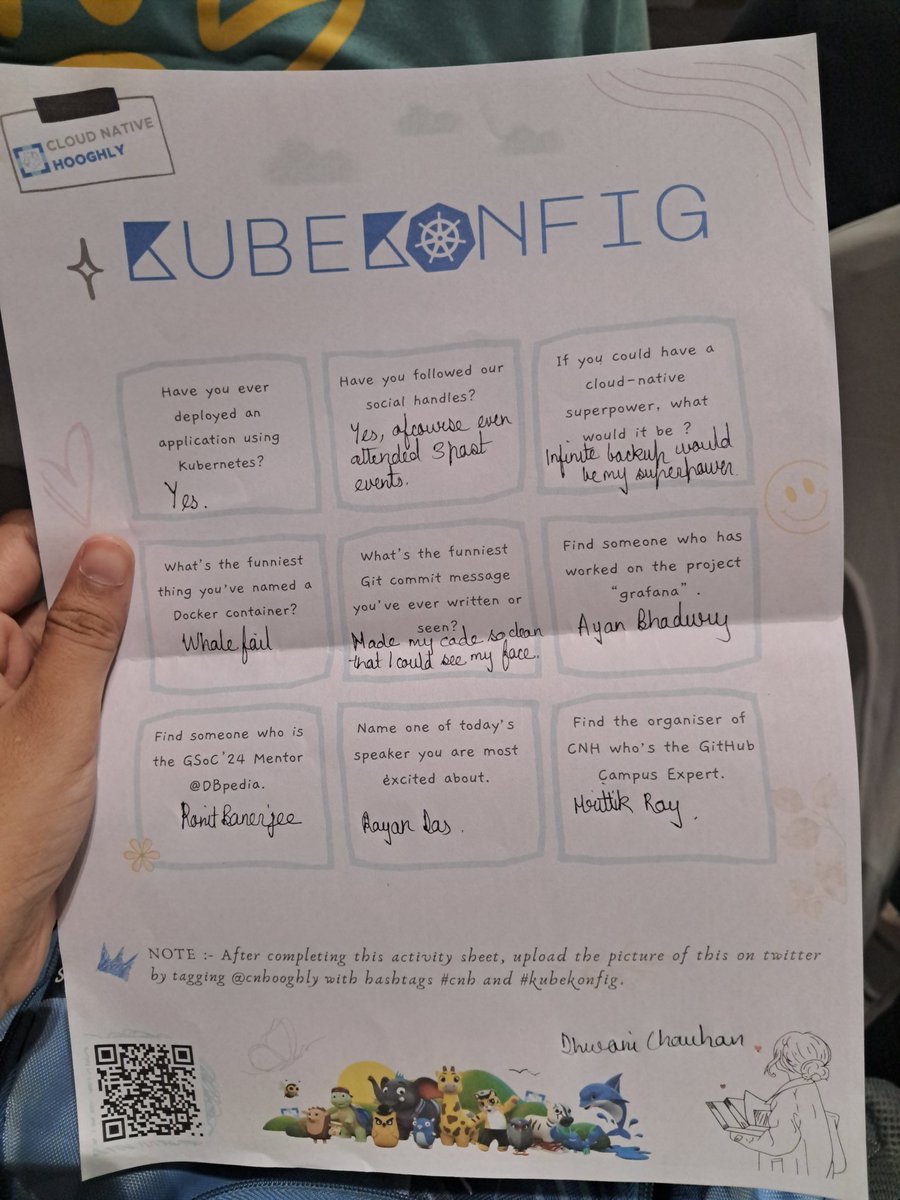 CLOUD NATIVE
HOOGHLY
KUBEKONFIG
Have you ever
deployed an
application using
Kubernetes?
Yes.
Have you followed our
social handles?
Yes, ofcourse even
attended 3 past
events.
If you could have a
cloud-native
superpower, what
would it be ?
Infinite backup would
be my superpower
What's the funniest
thing you've named a
Docker container?
Whale fail
What's the funniest
Git commit message
you've ever written or
seen?
Made my code so clean
that I could see my face.
Find someone who has
worked on the project
"grafana" .
Ayan Bhadury
Find someone who is
the GSoC'24 Mentor
@DBpedia.
Ronit Banerjee
Name one of today's
speaker you are most
excited about.
Aayan Das .
Find the organiser of
CNH who's the GitHub
Campus Expert.
Hrittik Roy
NOTE :- After completing this activity sheet, upload the picture of this on twitter
by tagging @cnhooghly with hashtags #cnh and #kubekonfig.
Dhwani Chauhan